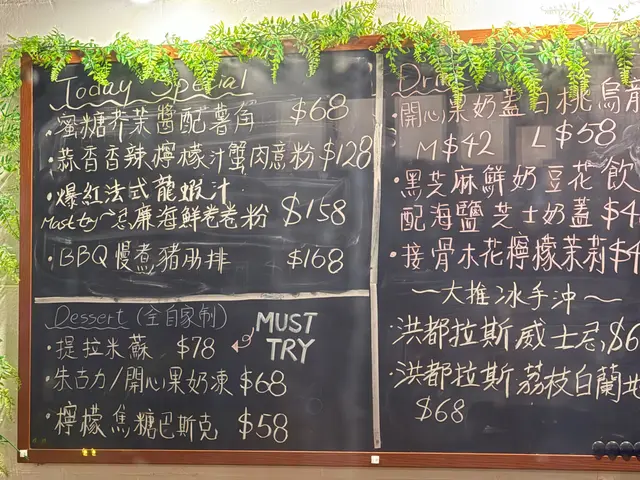 Today Special
·蜜糖芥茉醬配薯角 $68
·蒜香香辣檸檬汁蟹肉意粉 $128
·爆紅法式龍蝦汁
Must try~忌廉海鮮卷卷粉 $158
·BBQ慢煮豬肋排 $168
Dessert (全自家制)
·提拉米蘇 $78
MUST
TRY
·朱古力/開心果奶凍 $68
·檸檬焦糖巴斯克 $58
·開心果奶蓋白桃烏
M$42 L$58
·黑芝麻鮮奶豆花飲
配海鹽芝士奶蓋 $4
·接骨木花檸檬茉莉$4
~大推冰手沖~
·洪都拉斯威士忌,$6
·洪都拉斯荔枝白蘭
$68